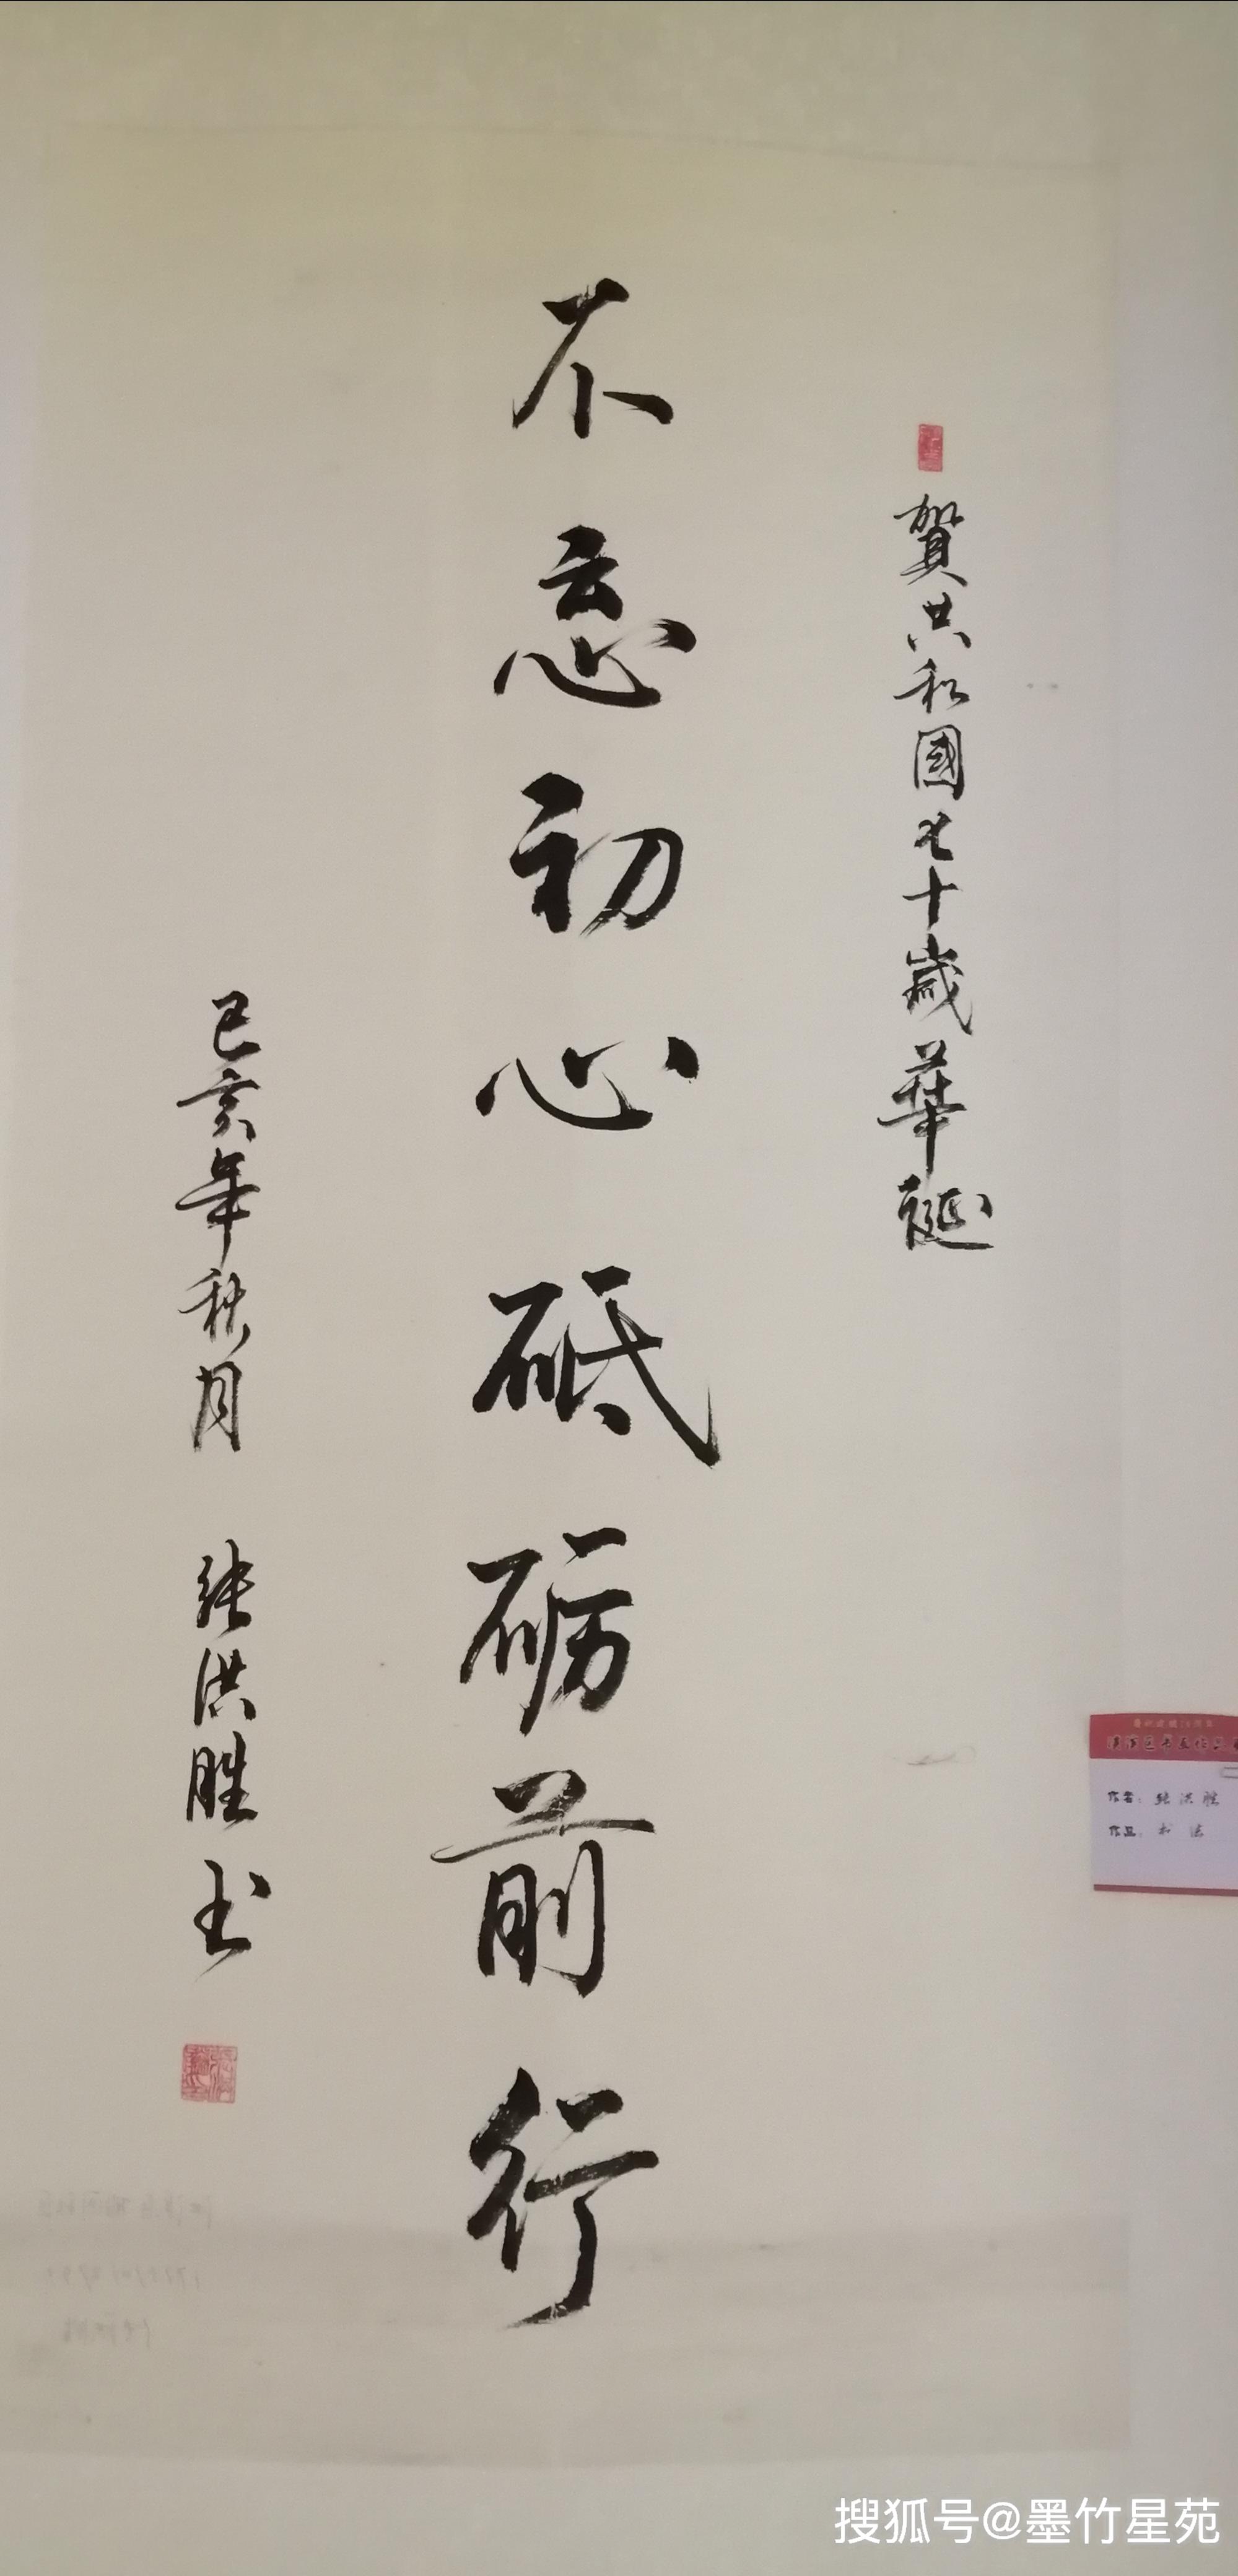 賀共和國七十歲華誕
不忘初心砥砺前行
己亥年秋月 张洪胜书
作者：张洪胜
作品：书法
搜狐号@墨竹星苑